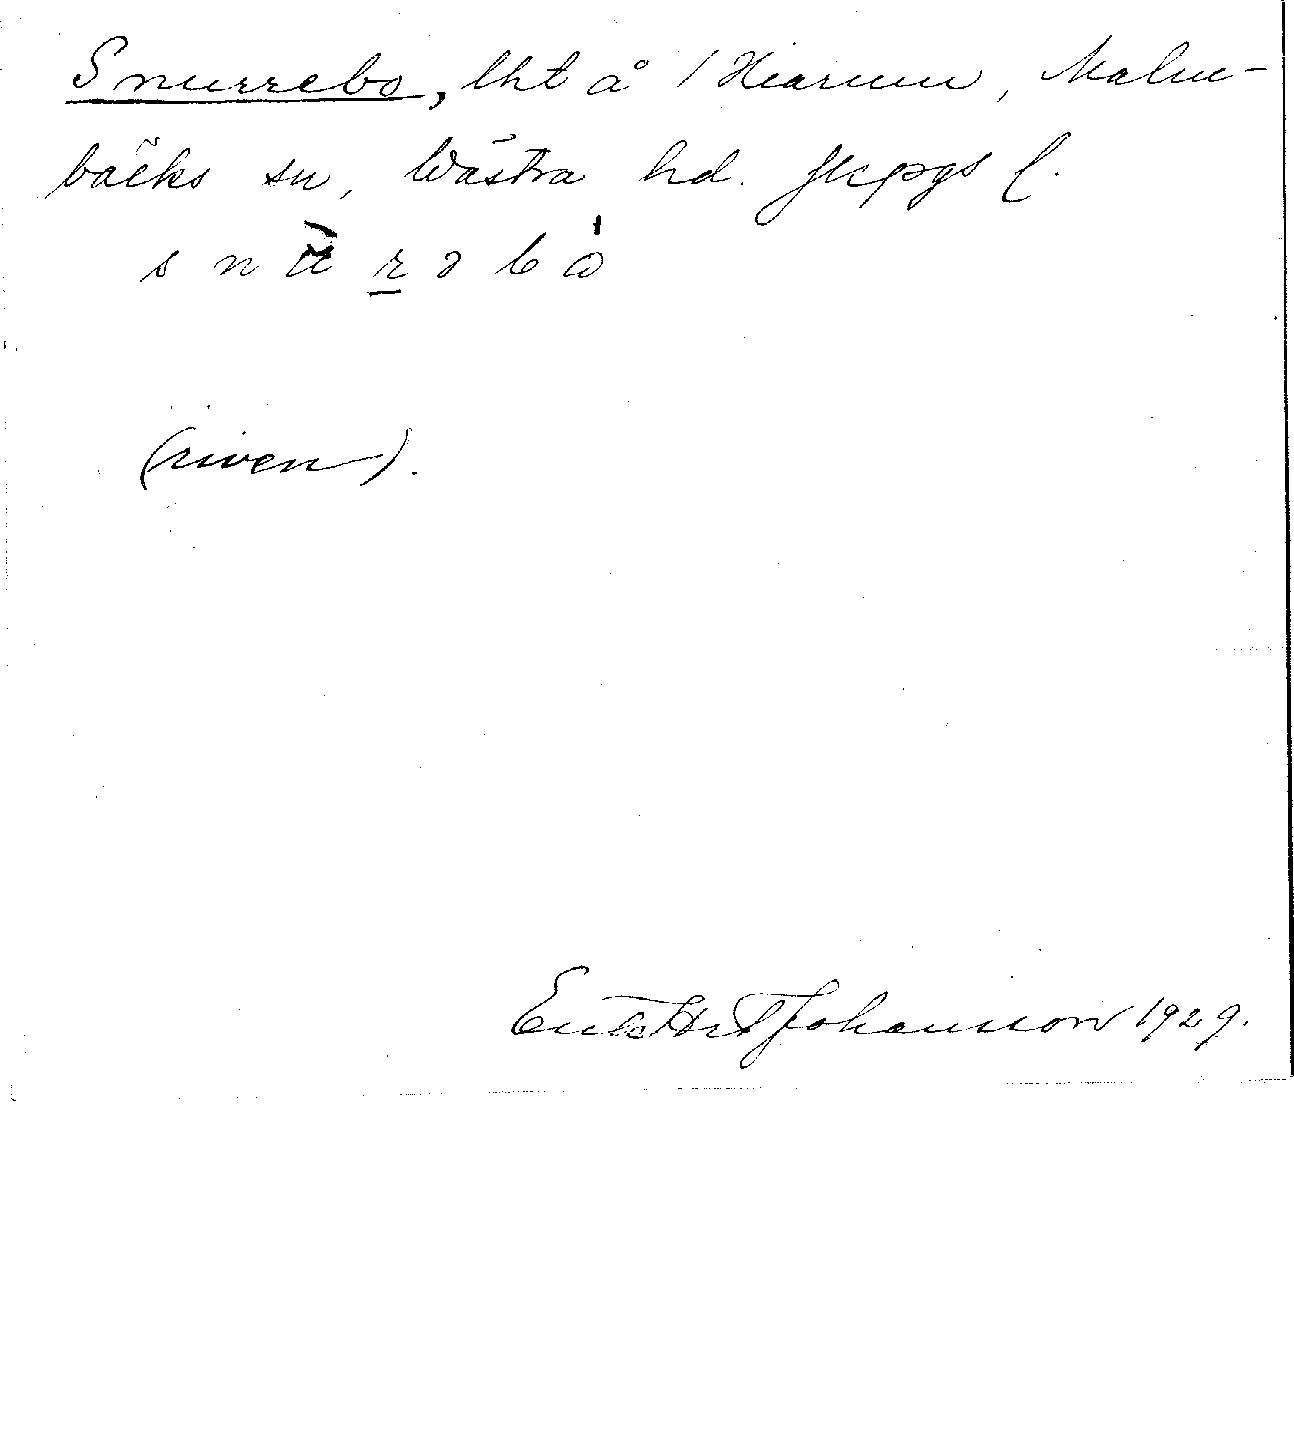 Snurrebo, lht å / Hiarum, Malm-
bäcks sn, Västra hd. Jkpgs l.
s n u r ə b ò
(riven).
Johansson 1929.